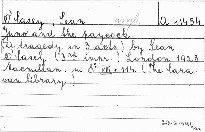 O'Casey, Sean
Juno and the paycock
(a tragedy in 3 acts) by Sean
O'Casey (3rd impr.) London 1928
Macmillan. in 8° VII + 114. (The cara
van library)